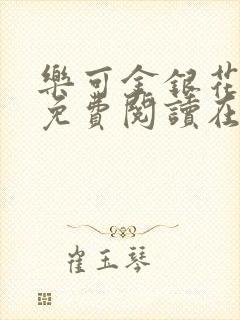 樂可金銀花
免費閱讀在
崔玉琴